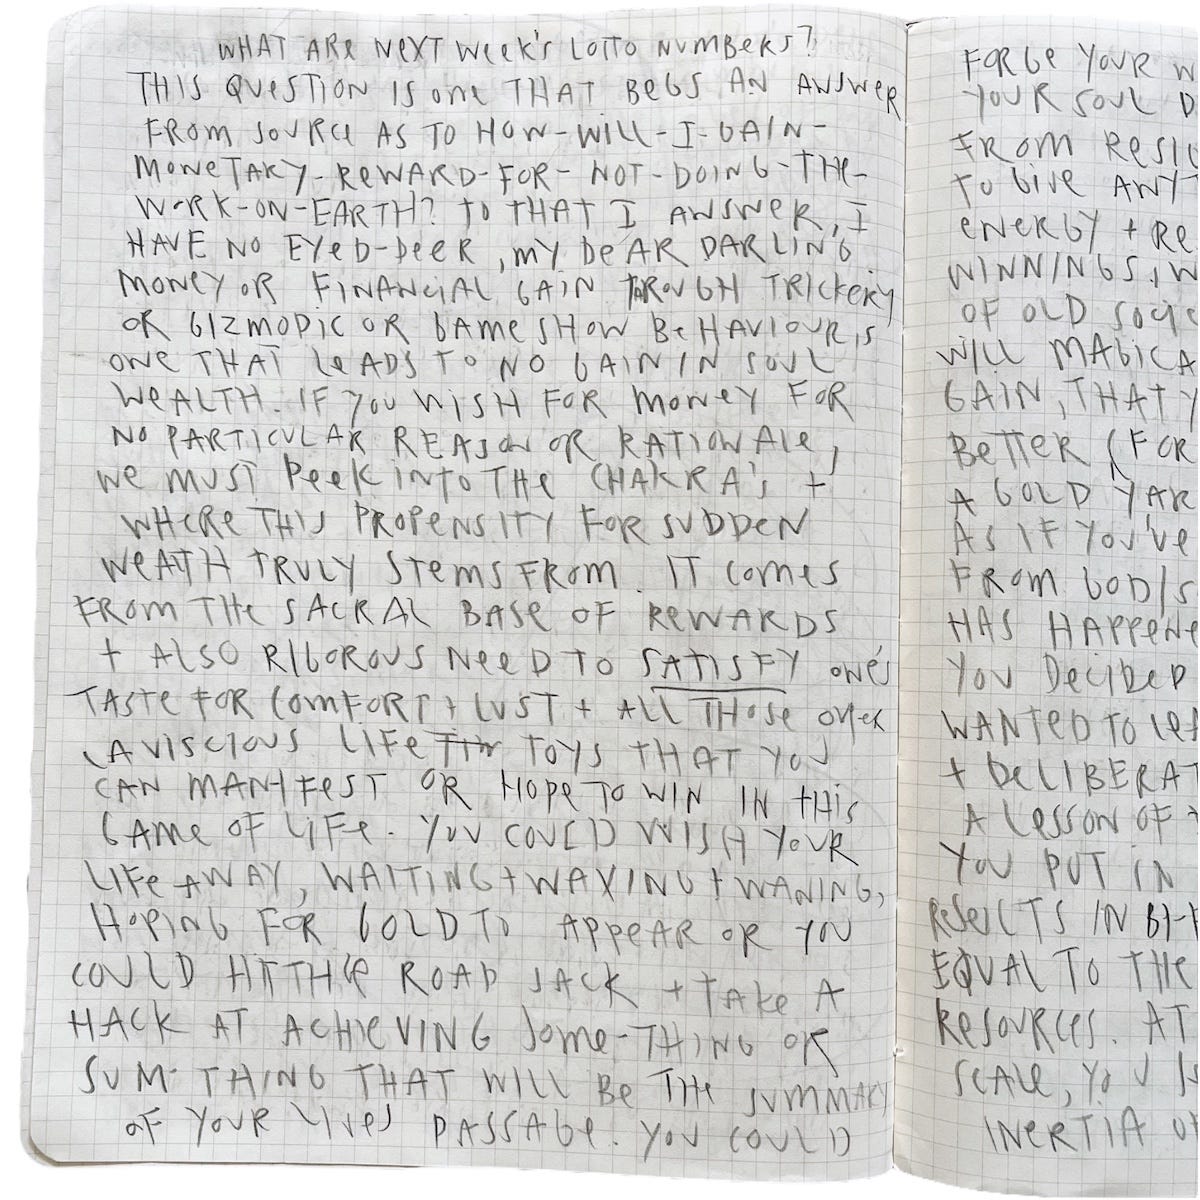 WHAT ARE NEXT WEEK'S LOTTO NUMBERS?
THIS QUESTION IS one THAT BEGS AN ANSWER
FROM SOURCE AS TO HOW-WILL-I-GAIN-
MONETARY-REWARD-FOR-NOT-DOING-THE-
WORK-ON-EARTH? TO THAT I ANSWER, I
HAVE NO EYED-DEER, MY DEAR DARLING
MONEY OR FINANCIAL GAIN THROUGH TRICKERY
OR GIZMODIC OR GAMESHOW BEHAVIOUR IS
ONE THAT LEADS TO NO GAIN IN SOUL
WEALTH. IF YOU WISH FOR MONEY FOR
NO PARTICULAR REASON OR RATIONALE,
WE MUST PEEK INTO THE CHAKRA'S +
WHERE THIS PROPENSITY FOR SUDDEN
WEATH TRULY STEMS FROM. IT COMES
FROM THE SACRAL BASE OF REWARDS
+ ALSO RIGOROUS NEED TO SATISFY ONE'S
TASTE FOR COMFORT + LUST + ALL THOSE OTHER
LAVISCIOUS LIFE TOYS THAT YOU
CAN MANIFEST OR HOPE TO WIN IN THIS
GAME OF LIFE. YOU COULD WISH YOUR
LIFE AWAY, WAITING + WAXING + WANING,
HOPING FOR GOLD TO APPEAR OR YOU
COULD HIT THE ROAD JACK + TAKE A
HACK AT ACHIEVING SOME-THING OR
SUM-THING THAT WILL BE THE SUMMARY
OF YOUR LIVES PASSAGE. YOU COULD
FORGE YOUR W
YOUR SOUL D
FROM RESI
TO GIVE ANYT
ENERGY + RE
WINNINGS, W
OF OLD
WILL MAGICA
GAIN, THAT Y
BETTER (FOR
A GOLD YAR
AS IF YOU'VE
FROM GOD/S
HAS HAPPENE
YOU DECIDED
WANTED TO LEA
+ DELIBERAT
A LESSON OF
YOU PUT IN
IN BY-
EQUAL TO THE
RESOURCES. AT
SCALE, YOU IS
INERTIA OF